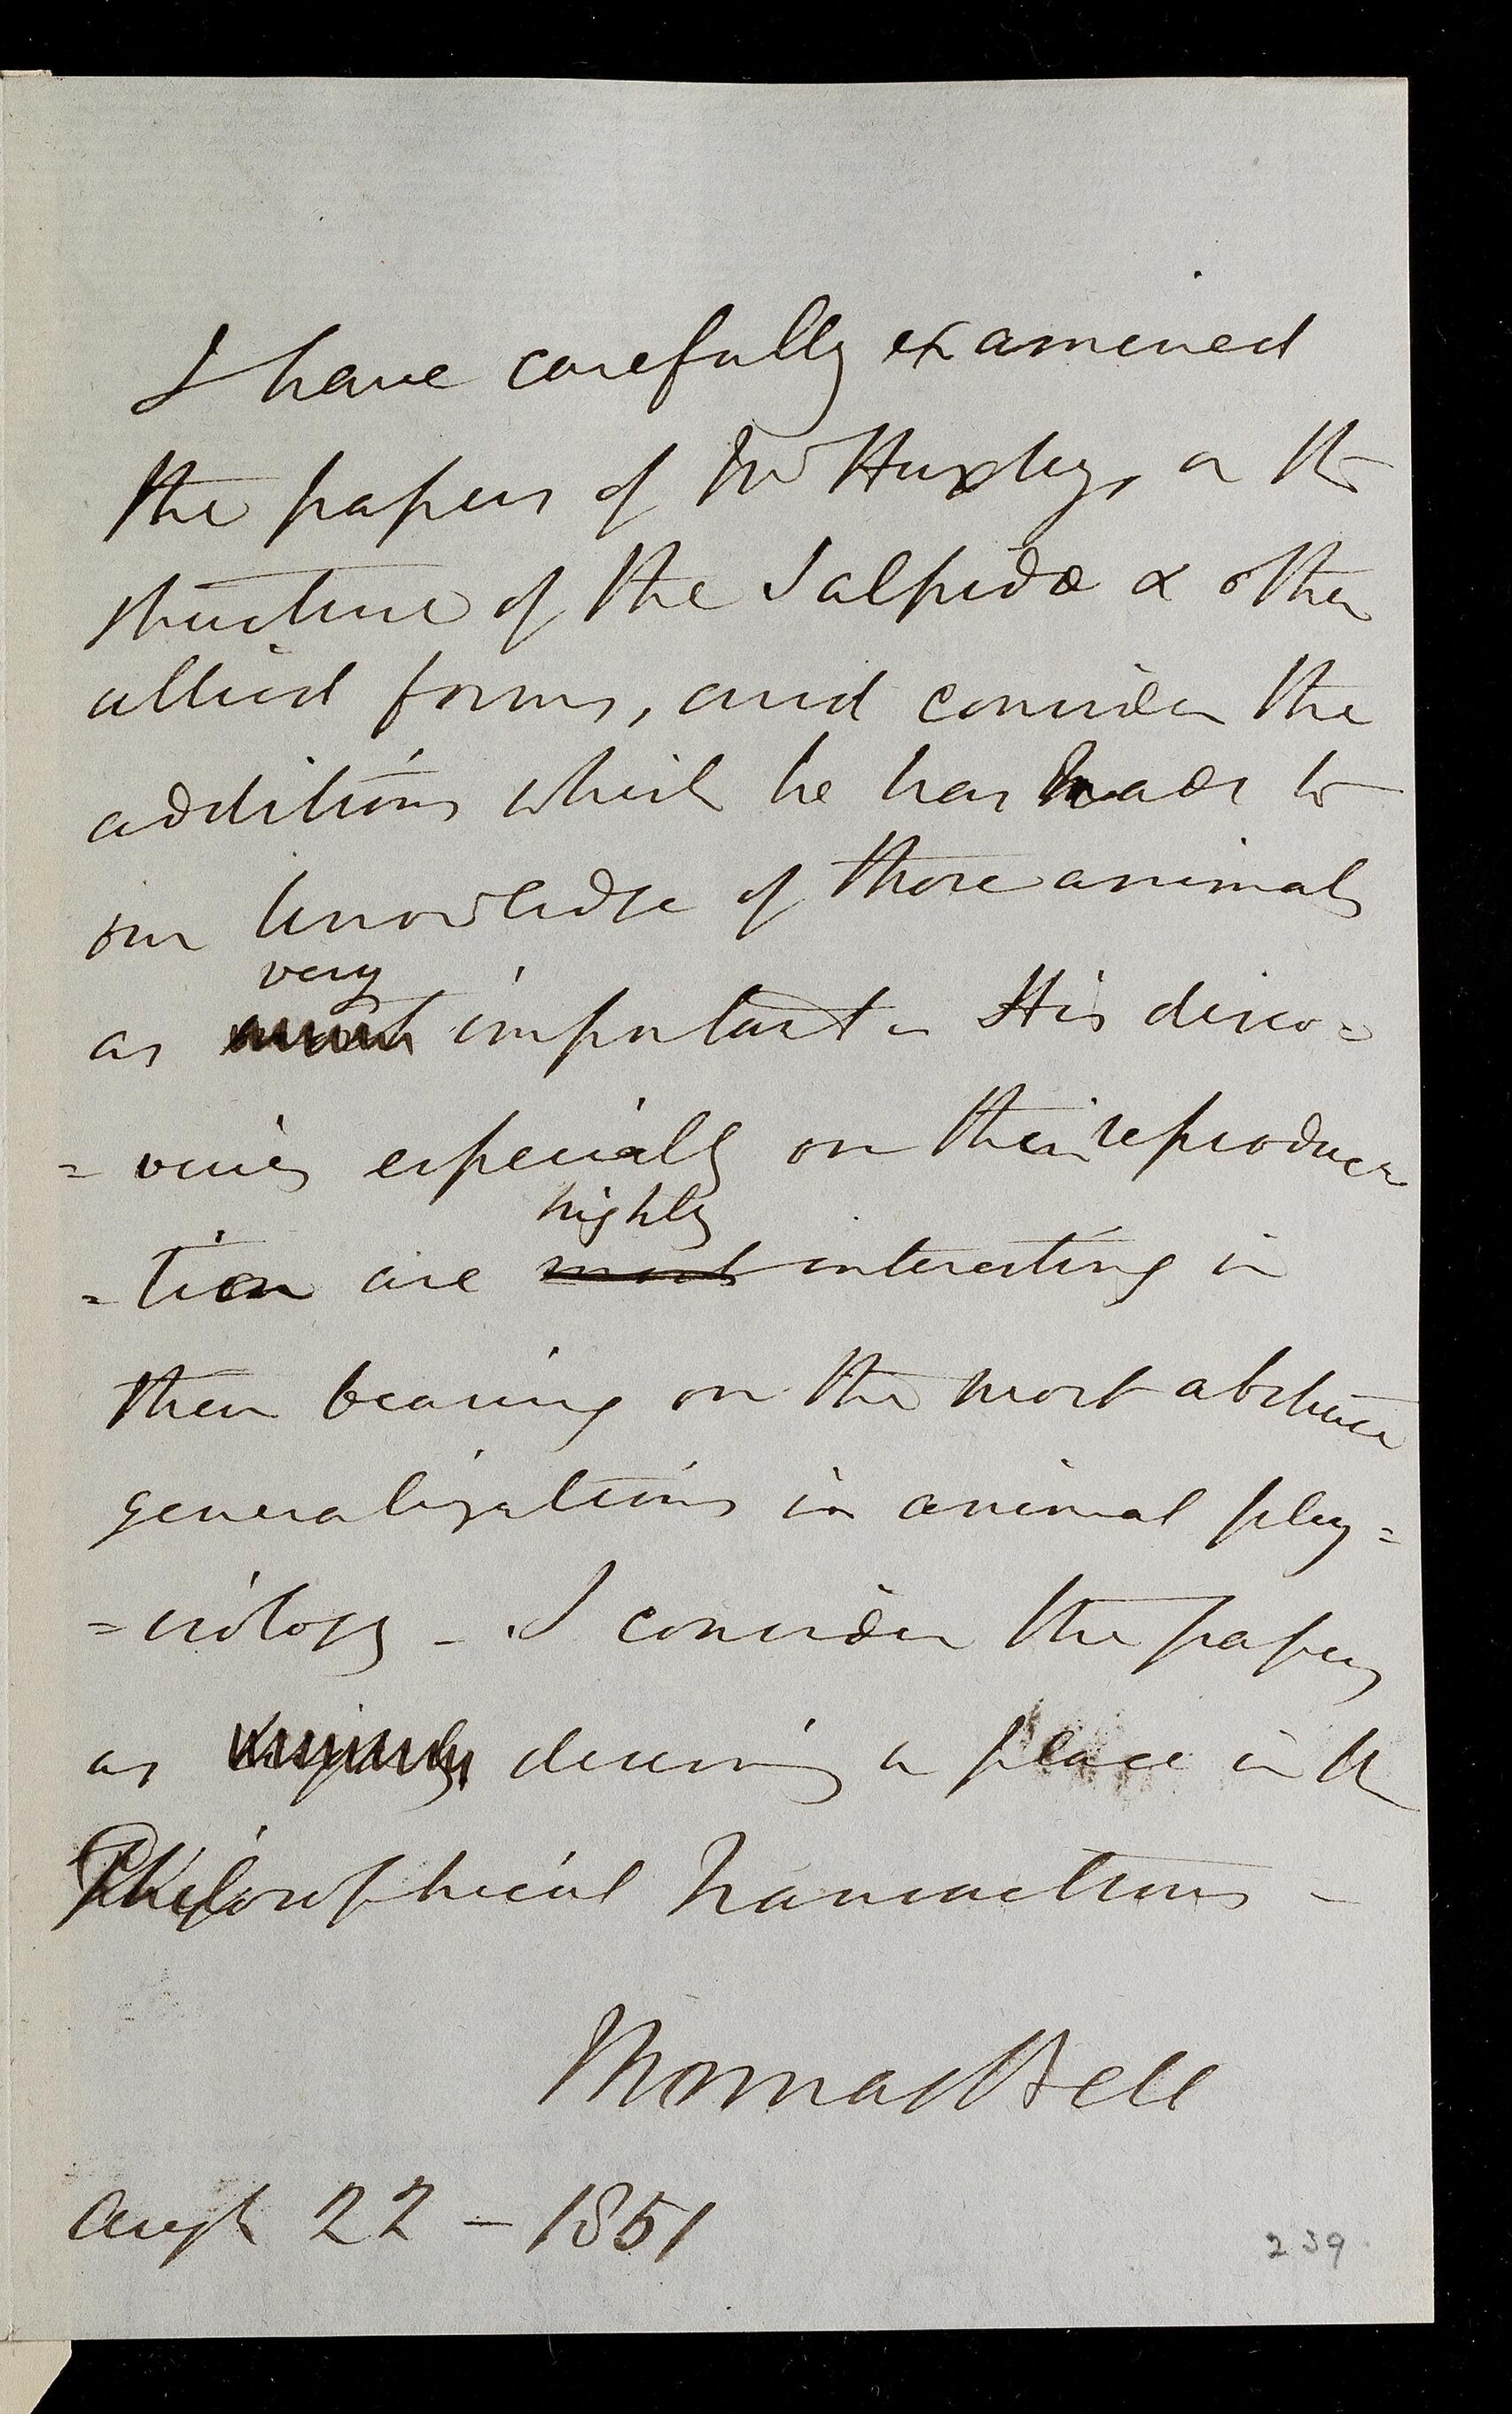 I have carefully examined
the papers of Mr Huxley, on the
structure of the Salpidæ & other
allied forms, and consider the
additions which he has made to
our knowledge of those animals
very
as important - His disco=
=veries especially on their reproduc
highly
=tion are most interesting in
their bearing on the most abstruse
generalizations in animal phy=
=siology - I consider the papers
as deserving a place in the
Philosophical Transactions -
Thomas Bell
Augt 22 - 1851
239